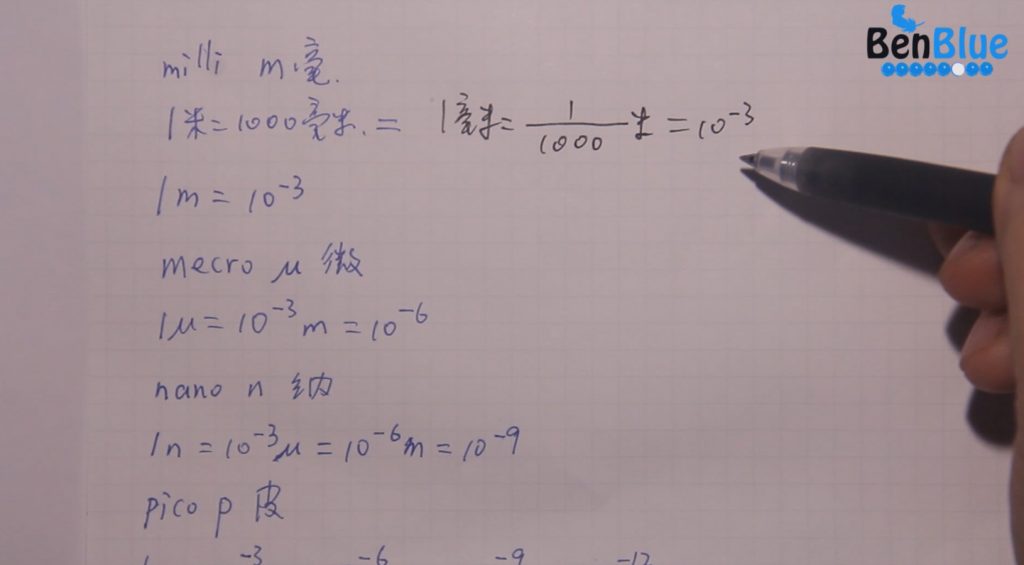 BenBlue
milli m 毫.
1米=1000毫米. = 1毫米= 1/1000 米 =10⁻³
1m = 10⁻³
mecro μ 微
1μ=10⁻³m=10⁻⁶
nano n 纳
1n=10⁻³μ=10⁻⁶m=10⁻⁹
pico p 皮
-3 -6 -9 -12